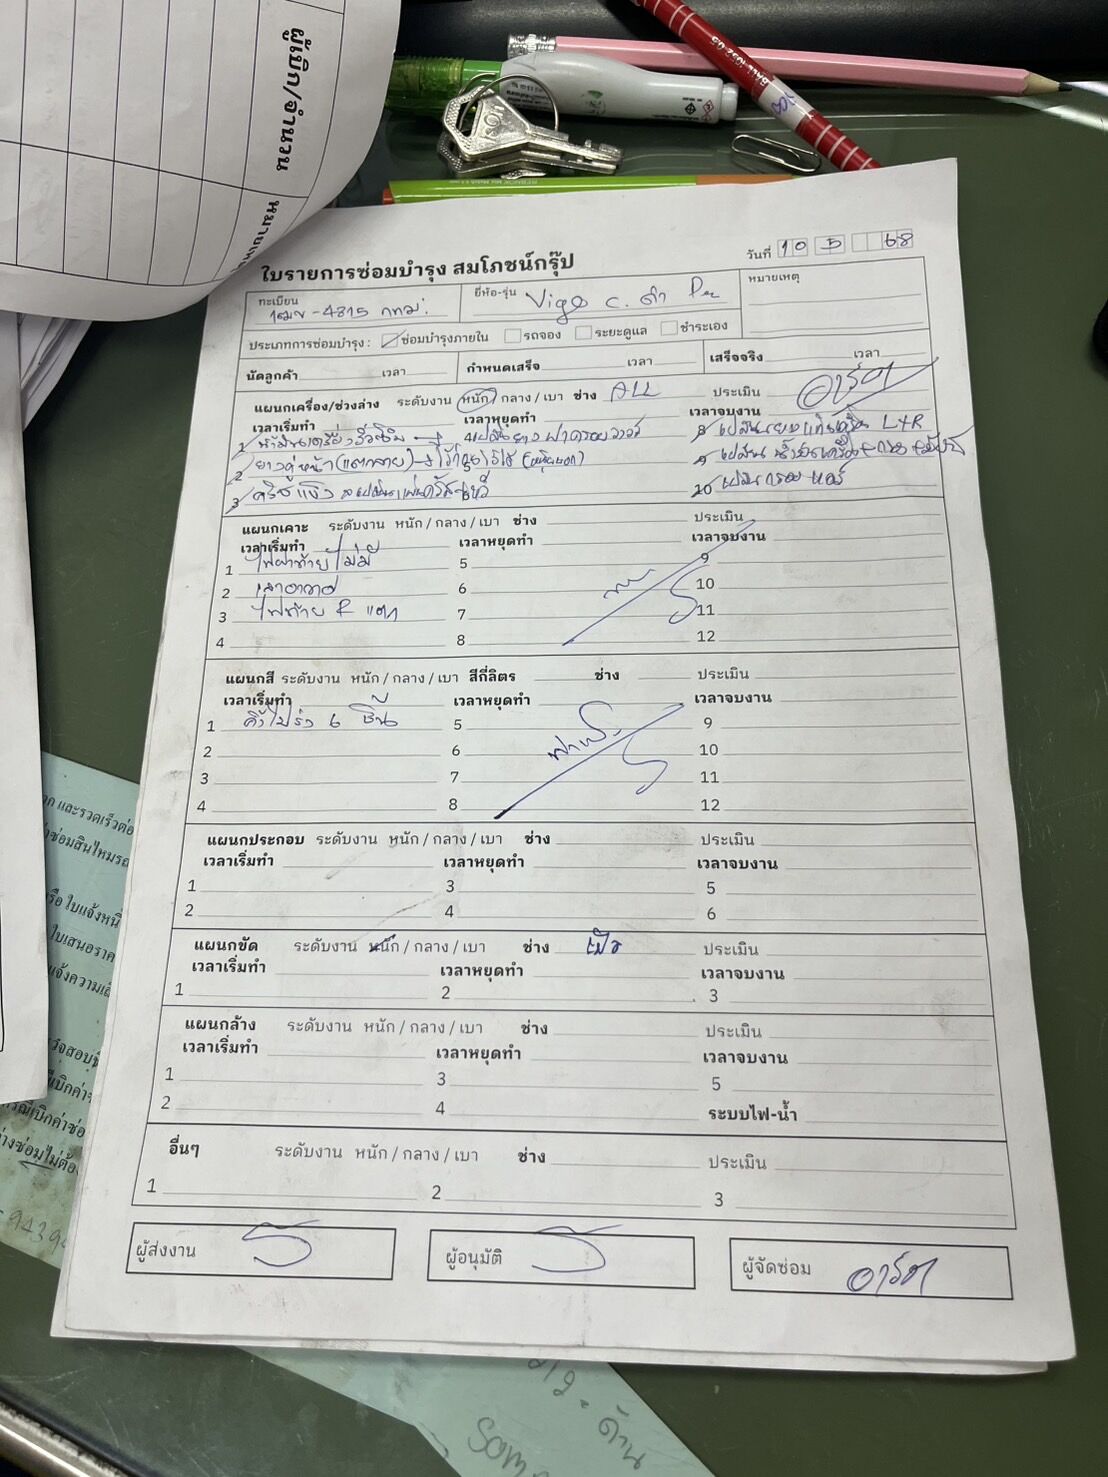 ผู้เบิก/จำนวน
หมายเหตุ
BALL 1052 0.5
ใบรายการซ่อมบำรุง สมโภชน์กรุ๊ป
วันที่ 10 5 68
ทะเบียน
-4815 กทม.
ยี่ห้อ-รุ่น Vigo C. ดำ
หมายเหตุ
ประเภทการซ่อมบำรุง : ซ่อมบำรุงภายใน รถจอง ระยะดูแล ชำระเอง
นัดลูกค้า เวลา กำหนดเสร็จ เวลา เสร็จจริง เวลา
แผนกเครื่อง/ช่วงล่าง ระดับงาน หนัก / กลาง / เบา ช่าง ALL ประเมิน อาร์ต
เวลาเริ่มทำ เวลาหยุดทำ เวลาจบงาน
1 น้ำมันเครื่องรั่วซึม → 4 เปลี่ยนยางฝาครอบวาล์ว 8 เปลี่ยนยางแท่นเครื่อง L+R
2 ยางคู่หน้า (แตกลาย) → 5 9 เปลี่ยน น้ำมันเครื่อง
3 6 10 เปลี่ยนกรองแอร์
แผนกเคาะ ระดับงาน หนัก / กลาง / เบา ช่าง ประเมิน
เวลาเริ่มทำ เวลาหยุดทำ เวลาจบงาน
1 ไฟฝาท้ายไม่มี 5 9
2 เสาอากาศ 6 10
3 ไฟท้าย R แตก 7 11
4 8 12
แผนกสี ระดับงาน หนัก / กลาง / เบา สีกี่ลิตร ช่าง ประเมิน
เวลาเริ่มทำ เวลาหยุดทำ เวลาจบงาน
1 6 ชิ้น 5 9
2 6 10
3 7 11
4 8 12
แผนกประกอบ ระดับงาน หนัก / กลาง / เบา ช่าง ประเมิน
เวลาเริ่มทำ เวลาหยุดทำ เวลาจบงาน
1 3 5
2 4 6
แผนกขัด ระดับงาน หนัก / กลาง / เบา ช่าง ประเมิน
เวลาเริ่มทำ เวลาหยุดทำ เวลาจบงาน
1 2 3
แผนกล้าง ระดับงาน หนัก / กลาง / เบา ช่าง ประเมิน
เวลาเริ่มทำ เวลาหยุดทำ เวลาจบงาน
1 3 5
2 4 ระบบไฟ-น้ำ
อื่นๆ ระดับงาน หนัก / กลาง / เบา ช่าง ประเมิน
1 2 3
ผู้ส่งงาน ผู้อนุมัติ ผู้จัดซ่อม อาร์ต